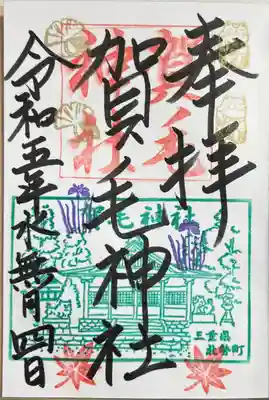 奉拝
賀毛神社
令和五年水無月四日
賀毛
神社
三重県
北勢町